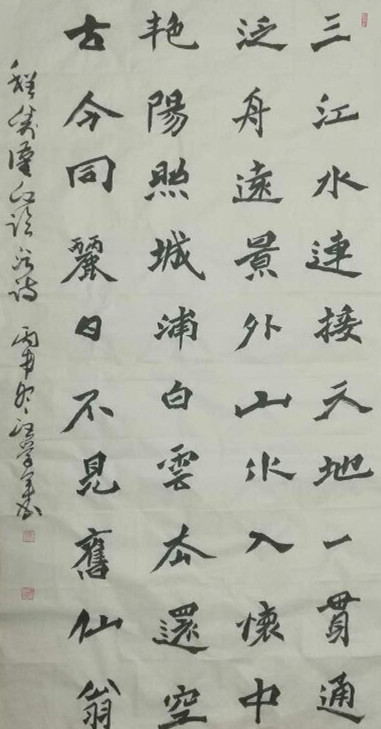 三江水連接天地一貫通
泛舟遠景外山水入懷中
艳陽照城浦白雲去還空
古今同麗日不見舊仙翁
詩 丙申冬